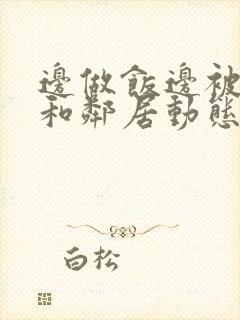 邊做飯邊被
和鄰居動態
白松